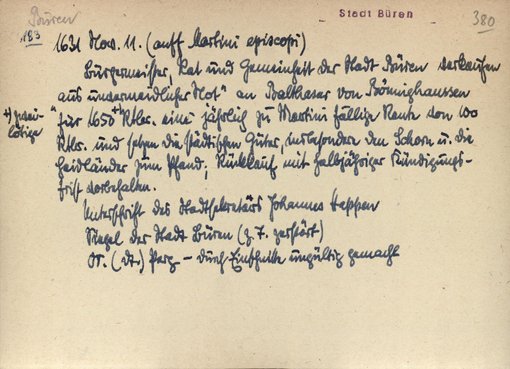 Büren
Stadt Büren
380
183
1631 Nov. 11. (auff Martini episcopi)
Bürgermeister, Rat und Gemeinheit der Stadt Büren verkaufen
"aus unvermeidlicher Not" an Balthasar von Bönninghausen
+) zwei-
lötige
für 1650 +) Rtlr. eine jährlich zu Martini fällige Rente von 100
Rtlr. und setzen die städtischen Güter, insbesondere den Schorn u. die
Heidländer zum Pfand; Rückkauf mit halbjähriger Kündigungs-
frist vorbehalten.
Unterschrift des Stadtsekretärs Johannes Heppen
Siegel der Stadt Büren (z. T. zerstört)
Or. (dt.) Perg – durch Einschnitte ungültig gemacht